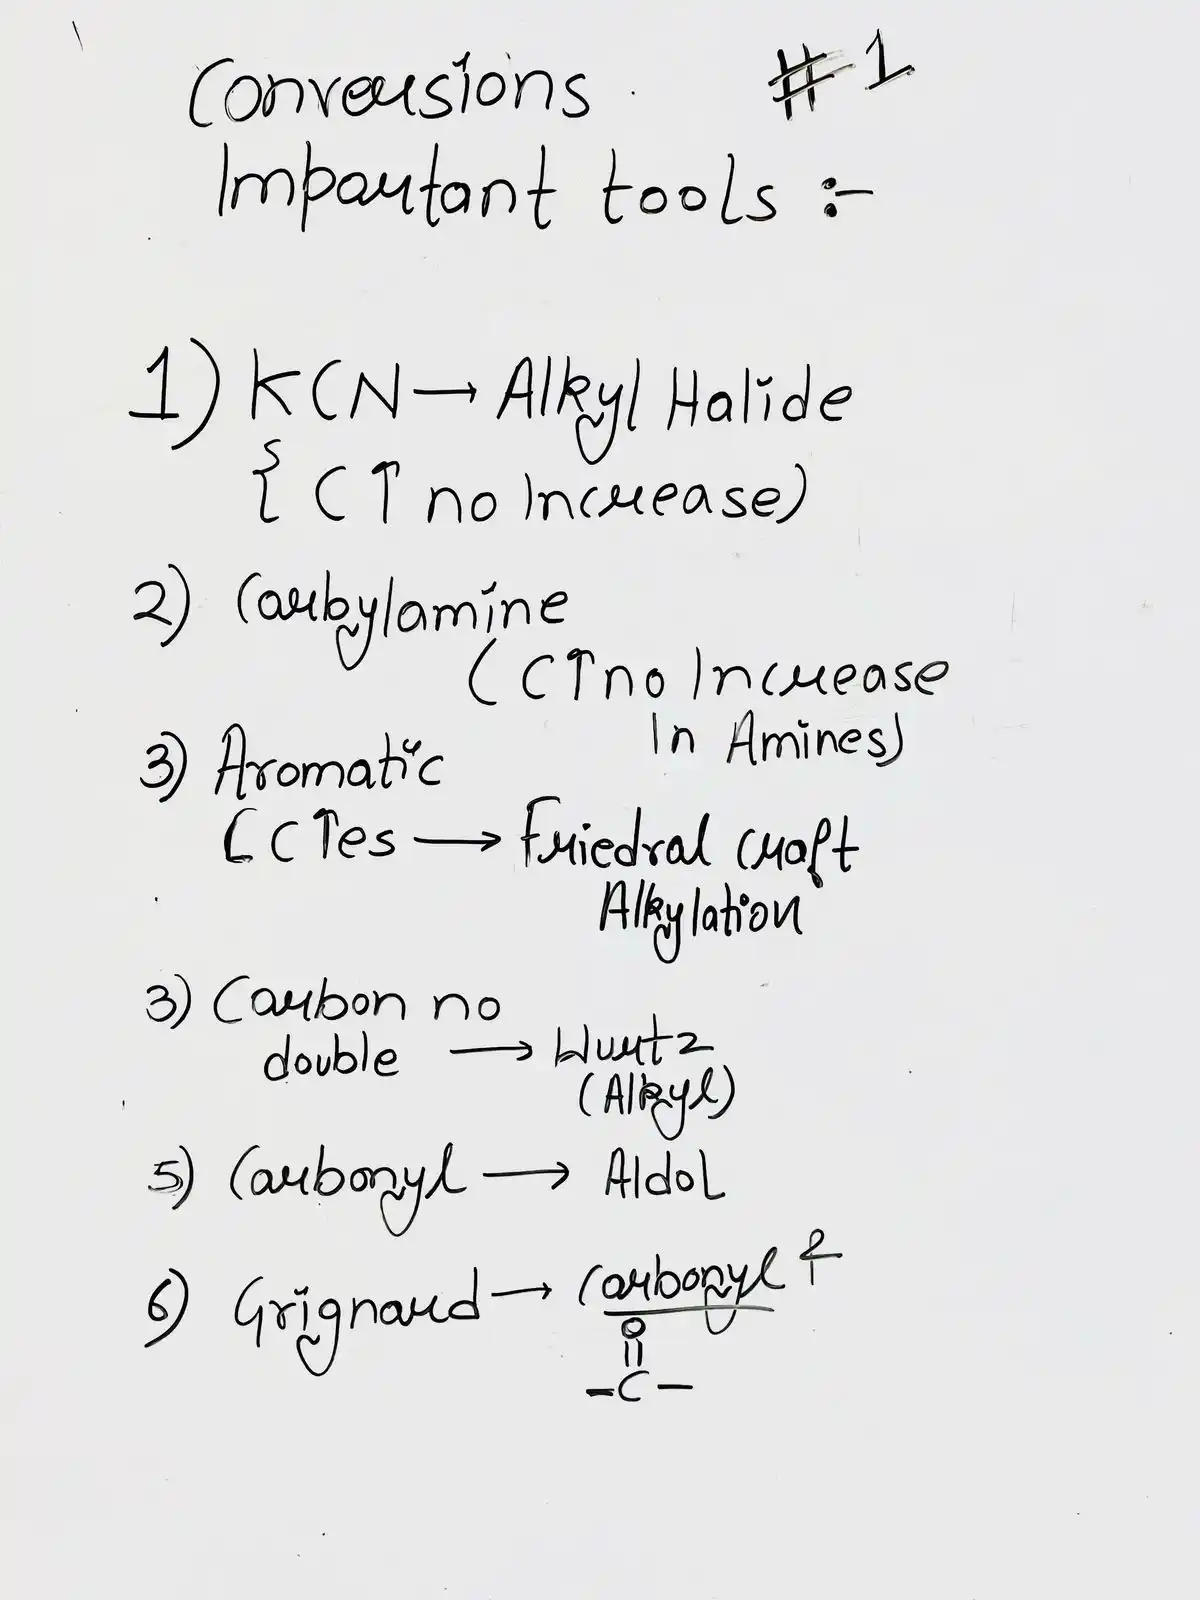 Conversions #1
Important tools :-
1) KCN → Alkyl Halide
{ C↑ no Increase)
2) Carbylamine
( C↑ no Increase
In Amines)
3) Aromatic
[ C↑es → Friedral craft
Alkylation
3) Carbon no
double → Wurtz
(Alkyl)
5) Carbonyl → Aldol
6) Grignard → Carbonyl
O
||
-C-